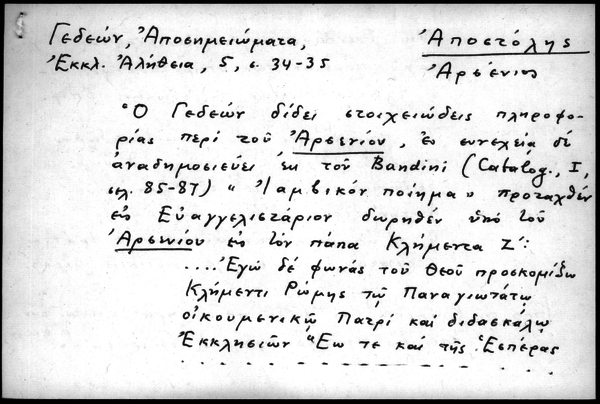 Γεδεών, Ἀποσημειώματα,
Ἀποστόλης
Ἐκκλ. Ἀλήθεια, 5, σ. 34-35
Ἀρσένιος
Ὁ Γεδεών δίδει στοιχειώδεις πληροφο-
ρίας περί τοῦ Ἀρσενίου, ἐν συνεχείᾳ δέ
ἀναδημοσιεύει ἐκ τοῦ Bandini (Catalog., I,
σελ. 85-87) "Ἰαμβικόν ποίημα" προταχθέν
εἰς Εὐαγγελιστάριον δωρηθέν ὑπό τοῦ
Ἀρσενίου εἰς τόν πάπα Κλήμεντα Ζ´:
....Ἐγώ δέ φωνάς τοῦ Θεοῦ προσκομίζω
Κλήμεντι Ρώμης τῷ Παναγιωτάτῳ
οἰκουμενικῷ Πατρί καί διδασκάλῳ
Ἐκκλησιῶν Ἕω τε καί τῆς Ἑσπέρας
. . . . . . . . . . . . . . .